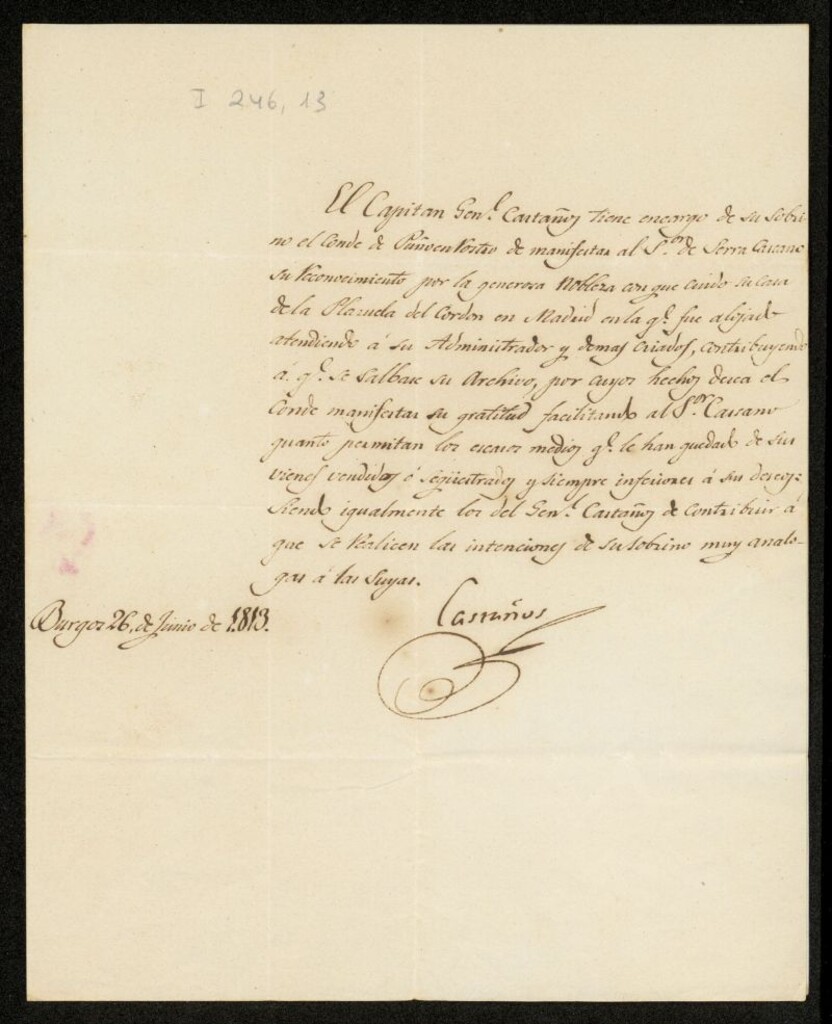 I 246, 13
El Capitan Gen.l Castaños tiene encargo de su sobri-
no el Conde de Puñonrostro de manifestar al S.or de Serra Cascano
su reconocimiento por la generosa Nobleza con que cuidó su casa
de la Plazuela del Cordon en Madrid en la q.e fue alojado
atendiendo á su Administrador y demas criados, contribuyendo
á q.e se salbase su Archivo, por cuyos hechos desea el
Conde manifestar su gratitud facilitando al S.or Cascano
quanto permitan los escasos medios q.e le han quedado de sus
vienes vendidos ó seqüestrados y siempre inferiores á sus deseos;
siendo igualmente los del Gen.l Castaños de contribuir á
que se realicen las intenciones de su sobrino muy analo-
gas á las suyas.
Burgos 26, de Junio de 1.813.
Castaños